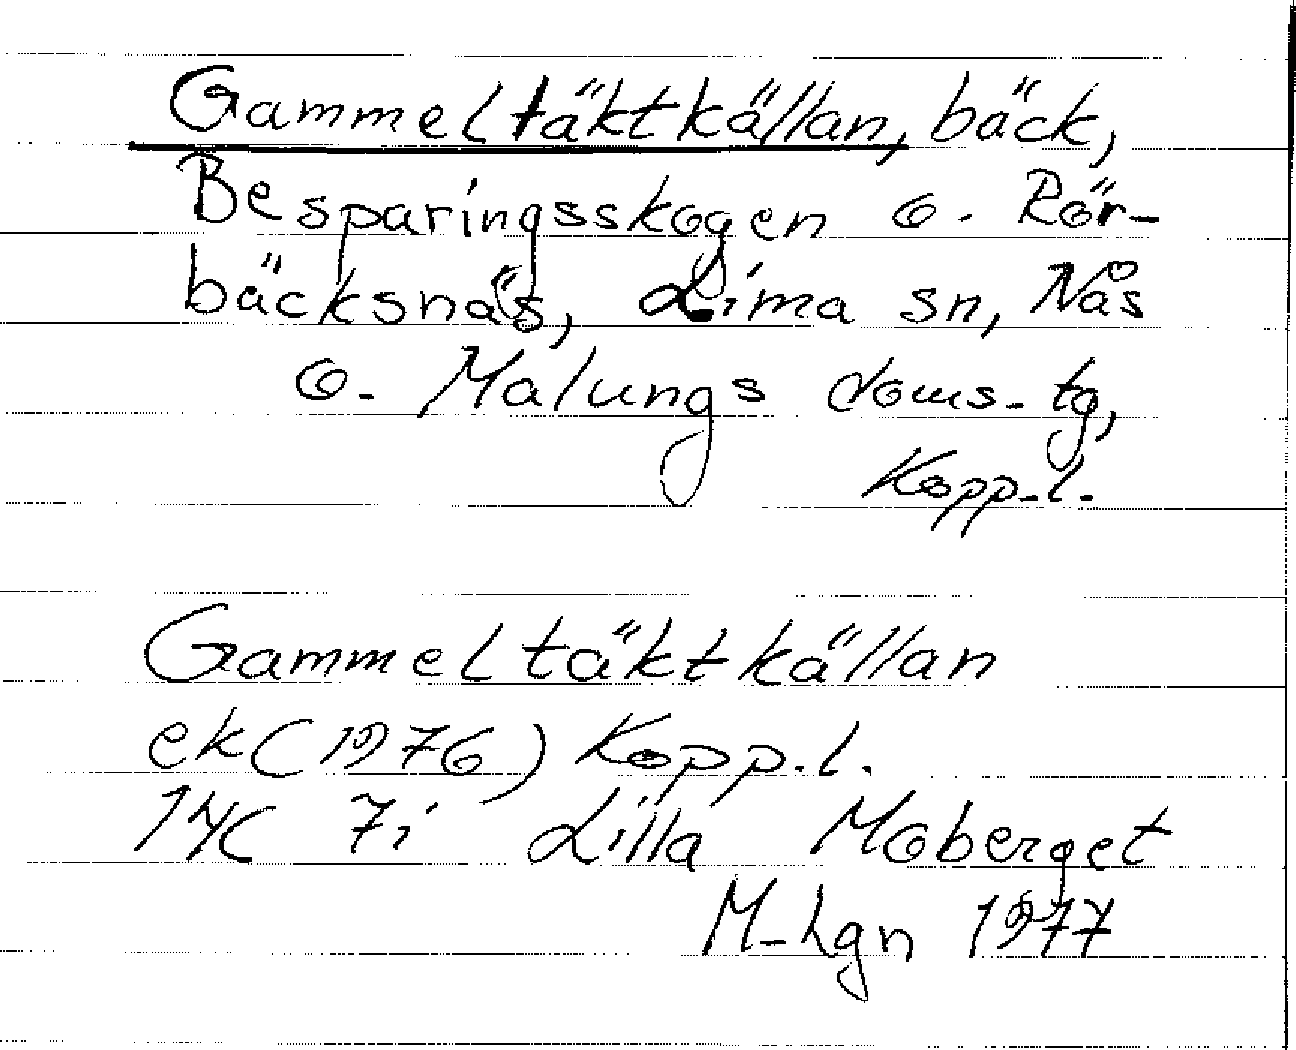 Gammeltäktkällan, bäck,
Besparingsskogen o. Rör-
bäcksnäs, Lima sn, Nås
o. Malungs doms. tg,
Kopp.l.
Gammeltäktkällan
ek (1976) Kopp.l.
14C 7i Lilla Moberget
M-hgn 1977